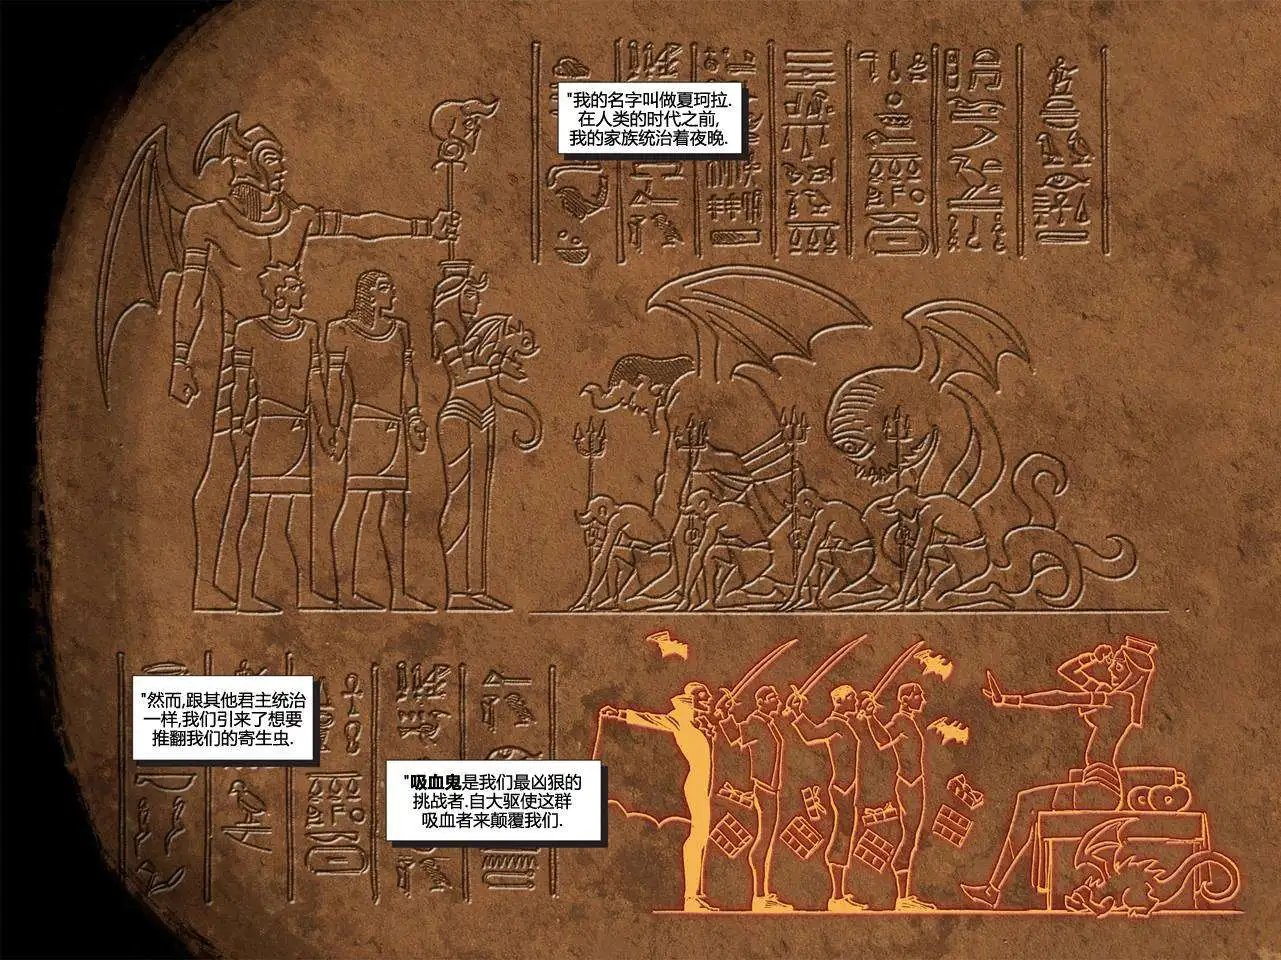 "我的名字叫做夏珂拉.
在人类的时代之前,
我的家族统治着夜晚.
"然而,跟其他君主统治
一样,我们引来了想要
推翻我们的寄生虫.
"吸血鬼是我们最凶狠的
挑战者.自大驱使这群
吸血者来颠覆我们.